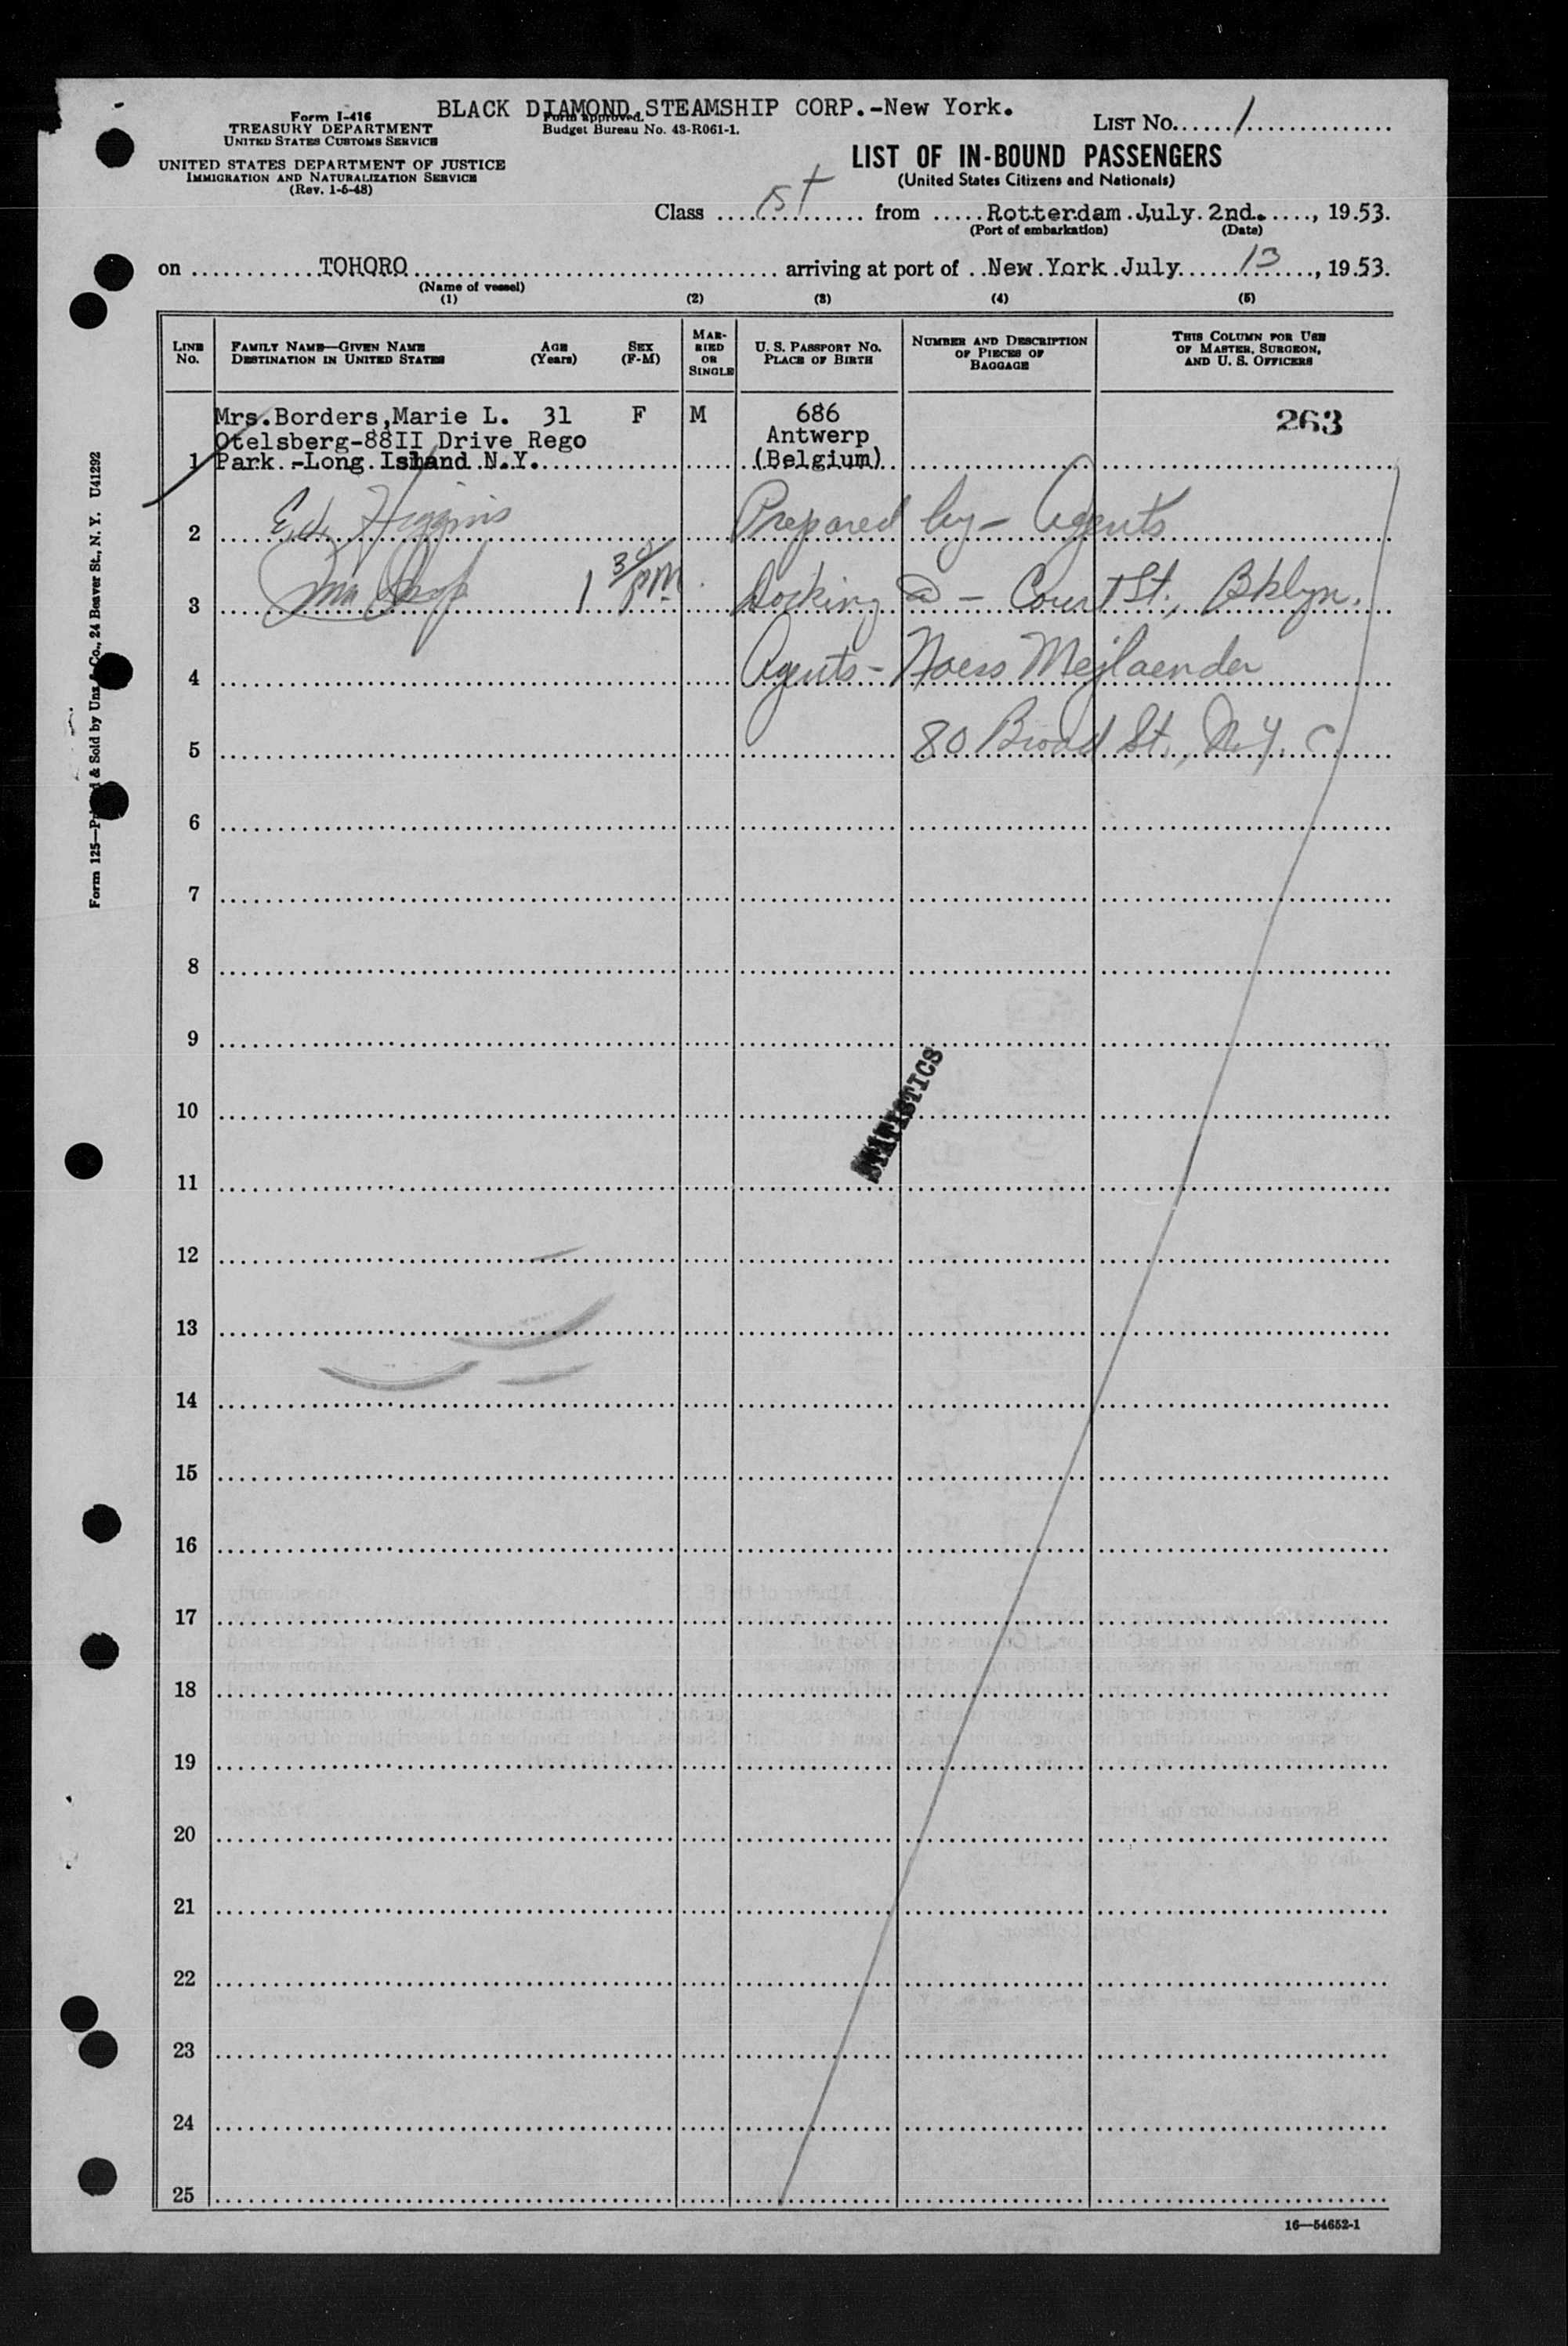 BLACK DIAMOND STEAMSHIP CORP.-New York.
Form I-416
TREASURY DEPARTMENT
UNITED STATES CUSTOMS SERVICE
Form approved.
Budget Bureau No. 43-R061-1.
LIST NO. 1
UNITED STATES DEPARTMENT OF JUSTICE
IMMIGRATION AND NATURALIZATION SERVICE
(Rev. 1-5-48)
LIST OF IN-BOUND PASSENGERS
(United States Citizens and Nationals)
Class 1st from Rotterdam July 2nd., 1953.
(Port of embarkation) (Date)
on TOHORO arriving at port of New York July 13, 1953.
(Name of vessel)
(1) (2) (3) (4) (5)
LINE No.
FAMILY NAME—GIVEN NAME
DESTINATION IN UNITED STATES
AGE (Years)
SEX (F-M)
MARRIED OR SINGLE
U. S. PASSPORT NO.
PLACE OF BIRTH
NUMBER AND DESCRIPTION OF PIECES OF BAGGAGE
THIS COLUMN FOR USE OF MASTER, SURGEON, AND U. S. OFFICERS
Mrs. Borders, Marie L. 31 F M 686 263
Otelsberg-88II Drive Rego Antwerp
1 Park -Long Island N.Y. (Belgium)
2 E.H. Higgins Prepared by - Agents
3 1 30/PM Docking @ - Court St., Bklyn.
4 Agents - Naess Mejlaender
5 80 Broad St., N.Y.C.
6
7
8
9
STATISTICS
10
11
12
13
14
15
16
17
18
19
20
21
22
23
24
25
16—54652-1
Form 125—Printed & Sold by Unz & Co., 24 Beaver St., N. Y. U41292